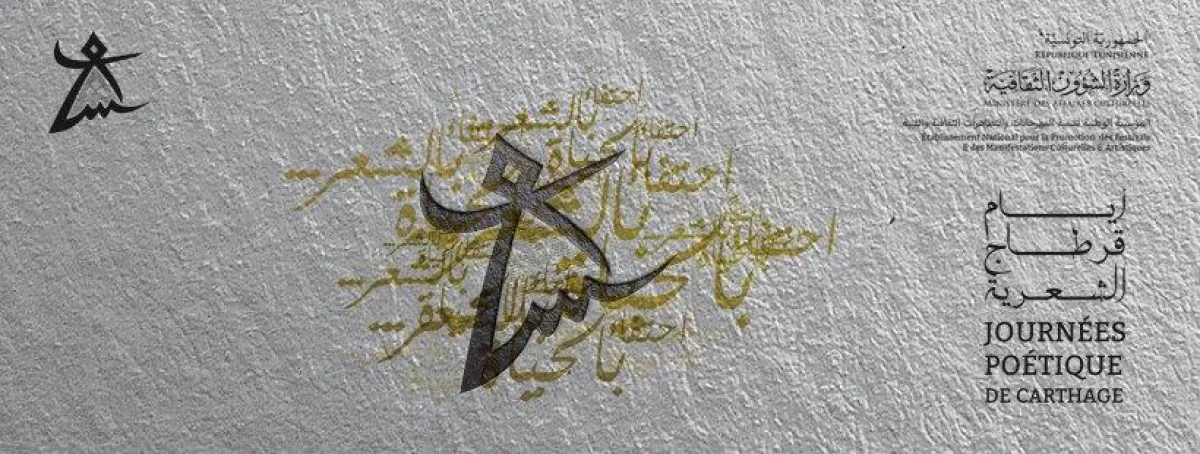 الجمهورية التونسية
RÉPUBLIQUE TUNISIENNE
وزارة الشؤون الثقافية
MINISTÈRE DES AFFAIRES CULTURELLES
المؤسسة الوطنية لتنمية المهرجانات والتظاهرات الثقافية والفنية
Etablissement National pour la Promotion des Festivals
& des Manifestations Culturelles & Artistiques
أيام
قرطاج
الشعرية
JOURNÉES
POÉTIQUE
DE CARTHAGE
احتفاء بالشعر
احتفاء بالحياة
بالشعر...
احتفاء
بالحياة
بالشعر...
احتفاء
بالحياة